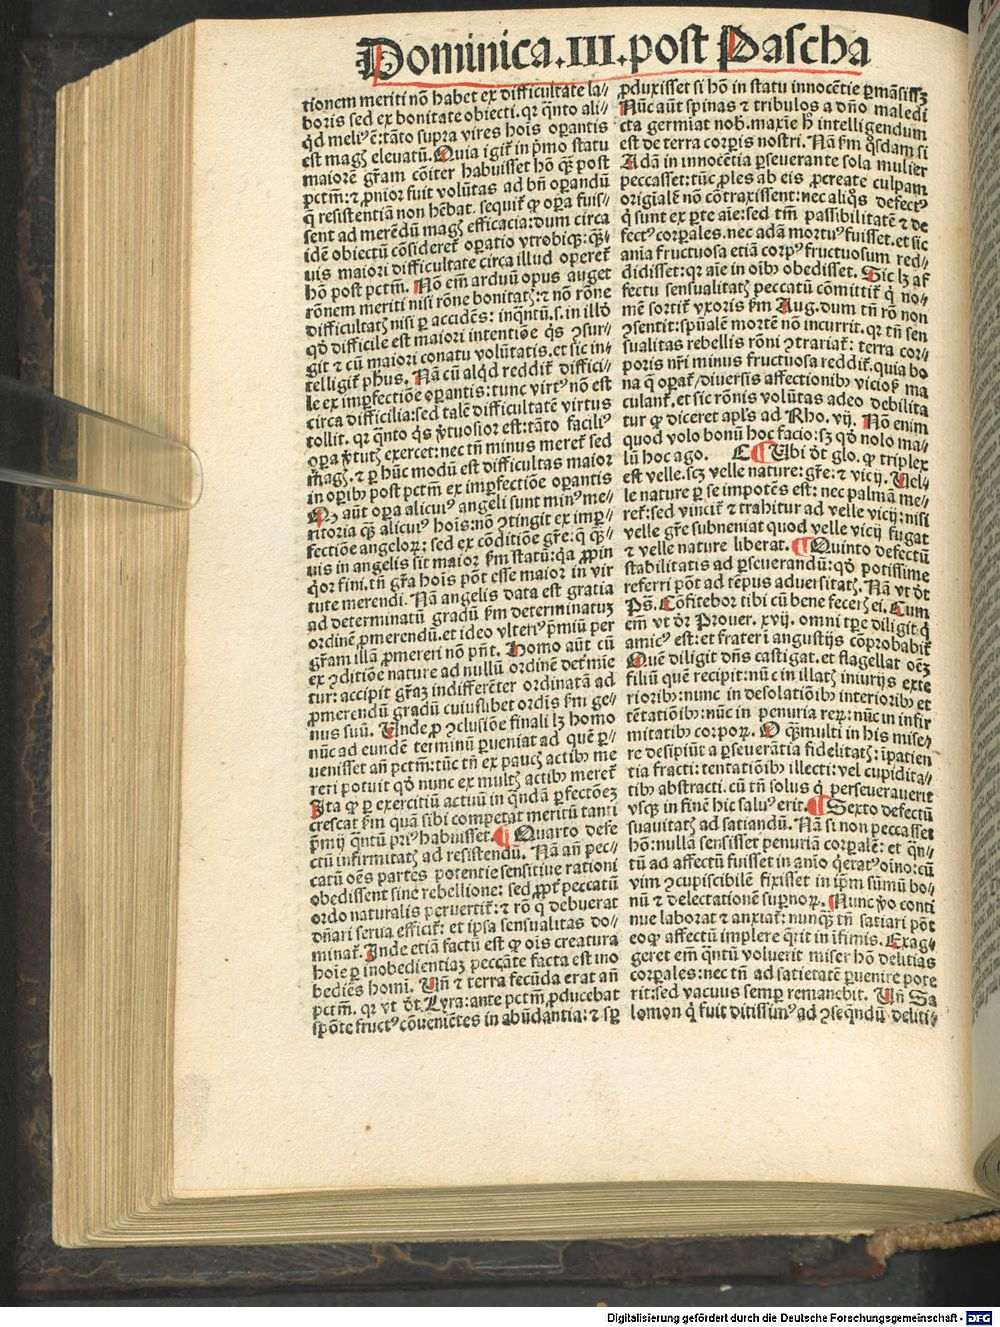 Dominica.III.post Pascha
tionem meriti nō habet ex difficultate la⸗
boris sed ex bonitate obiecti. qr q̄nto ali⸗
q̄d meliꝰ ē: tāto supra vires hoīs oꝑantis
est magꝭ eleuatū. Quia igit̄ in p̄mo statu
maiorē gr̄am cōiter habuisset hō qꝫ post
pctm̄: ⁊ ꝓnior fuit volūtas ad bn̄ oꝑandū
q̄ resistentiā non hēbat. sequit̄ ꝙ oꝑa fuis⸗
sent ad merēdū magꝭ efficacia: dum circa
idē obiectū cōsideret̄ oꝑatio vtrobiqꝫ: qꝫ⸗
uis maiori difficultate circa illud oꝑeret̄
hō post pctm̄. Nō em̄ arduū opus auget
rōnem meriti nisi rōne bonitatꝭ: ⁊ nō rōne
difficultatꝭ nisi ꝑ accidēs: inq̄ntū .s. in illo
qd̄ difficile est maiori intentiōe q̄s ꝯsur⸗
git ⁊ cū maiori conatu volūtatis. et sic in⸗
telligit̄ ph̄us. Nā cū alqd̄ reddit̄ diffici⸗
le ex imꝑfectiōe oꝑantis: tunc virtꝰ nō est
circa difficilia: sed talē difficultatē virtus
tollit. qr q̄nto q̄s v̓tuosior est: tāto faciliꝰ
oꝑa v̓tutꝭ exercet: nec tn̄ minus meret̄ sed
magꝭ. ⁊ ꝑ hūc modū est difficultas maior
in oꝑibꝰ post pctm̄ ex imꝑfectiōe oꝑantis
Q aūt oꝑa alicuiꝰ angeli sunt minꝰ me⸗
ritoria qꝫ alicuiꝰ hoīs: nō ꝯtingit ex imꝑ⸗
fectiōe angeloꝝ: sed ex cōditiōe gr̄e. q̄ qꝫ⸗
uis in angelis sit maior ẜm statū: q̄a ꝓpin
q̄or fini. tn̄ gr̄a hoīs pōt esse maior in vir
tute merendi. Nā angelis data est gratia
ad determinatū gradū ẜm determinatuꝫ
ordinē ꝓmerendū. et ideo vlteriꝰ p̄miū per
gr̄am illā ꝓmereri nō pn̄t. Homo aūt cū
ex ꝯditiōe nature ad nullū ordinē det̓mīe
tur: accipit gr̄aꝫ indifferēter ordinatā ad
ꝓmerendū gradū cuiuslibet ordīs ẜm ge⸗
nus suū. Unde ꝓ ꝯclusiōe finali lꝫ homo
nūc ad eundē terminū ꝑueniat ad quē ꝑ⸗
uenisset añ pctm̄: tūc tn̄ ex paucꝭ actibꝰ me
reri potuit qd̄ nunc ex multꝭ actibꝰ meret̄
Ita ꝙ ꝑ exercitiū actuū in q̄ndā ꝑfectōeꝫ
crescat ẜm quā sibi competat meritū tanti
p̄mij q̄ntū priꝰ habuisset. ¶ Quarto defe
ctū infirmitatꝭ ad resistendū. Nā añ pec⸗
catū oēs partes potentie sensitiue rationi
obedissent sine rebellione: sed ꝓpt̄ peccatū
ordo naturalis peruertit̄: ⁊ rō q̄ debuerat
dn̄ari serua efficit̄: et ip̄sa sensualitas do⸗
minat̄. Inde etiā factū est ꝙ oīs creatura
hoīe ꝑ inobedientiaꝫ peccāte facta est ino
bediēs homī. Un̄ ⁊ terra fecūda erat añ
pctm̄. qr vt dt̄ Lyra: ante pctm̄ ꝓducebat
spōte fructꝰ cōuenietes in abūdantia: ⁊ sꝑ
ꝓduxisset si hō in statu innocētie ꝑmāsissꝫ
Nūc aūt spinas ⁊ tribulos a dn̄o maledi
cta germīat nob̄. maxīe h̄ intelligendum
est de terra corꝑis nostri. Nā ẜm q̄sdam si
Adā in innocētia ꝑseuerante sola mulier
peccasset: tūc ꝓles ab eis ꝓcreate culpam
originalē nō cōtraxissent: nec aliq̄s defectꝰ
q̄ sunt ex ꝑte aīe: sed tm̄ passibilitatē ⁊ de
fectꝰ corꝑales. nec adā mortuꝰ fuisset. et sic
anīa fructuosa etiā corpꝰ fructuosum red⸗
didisset: qr aīe in oībꝰ obedisset. Sic lꝫ af
fectu sensualitatꝭ peccatū cōmittit̄ q̄ no⸗
mē sortit̄ vxoris ẜm Aug. dum tn̄ rō non
ꝯsentit: spūalē mortē nō incurrit. qr tn̄ sen
sualitas rebellis rōni ꝯtrariat̄: terra cor⸗
poris nr̄i minus fructuosa reddit̄. quia bo
na q̄ oꝑat̄/diuersis affectionibꝰ viciosꝭ ma
culant̄. et sic rōnis volūtas adeo debilita
tur ꝙ diceret apl̓s ad Rho. vij. Nō enim
quod volo bonū hoc facio: sꝫ qd̄ nolo ma⸗
lū hoc ago. C ¶ Ubi dt̄ glo. ꝙ triplex
est velle. scꝫ velle nature: gr̄e: ⁊ vicij. Vel⸗
le nature ꝑ se impotēs est: nec palmā me⸗
ret̄: sed vincit̄ ⁊ trahitur ad velle vicij: nisi
velle gr̄e subueniat quod velle vicij fugat
⁊ velle nature liberat. ¶ Quinto defectū
stabilitatis ad ꝑseuerandū: qd̄ potissime
referri pōt ad tēpus aduersitatꝭ. Nā vt dt̄
Ps̄. Cōfitebor tibi cū bene fecerꝭ ei. Cum
em̄ vt dr̄ Prouer. xvij. omni tꝑe diligit q̄
amicꝰ est: et frater ī angustijs cōprobabit̄
Quē diligit dn̄s castigat. et flagellat oēꝫ
filiū quē recipit: nūc in illatꝭ iniurijs exte
rioribꝰ: nunc in desolatiōibꝰ interioribꝰ et
tētatiōibꝰ: nūc in penuria reꝝ: nūc in infir
mitatibꝰ corpoꝝ. O qꝫmulti in his mise⸗
re desipiūt a ꝑseuerātia fidelitatꝭ: īpatien
tia fracti: tentatiōibꝰ illecti: vel cupidita⸗
tibꝰ abstracti. cū tn̄ solus q̄ perseverauerit
vsqꝫ in finē hic saluꝰ erit. ¶ Sexto defectū
suauitatꝭ ad satiandū. Nā si non peccasset
hō: nullā sensisset penuriā corꝑalē: et qn̄⸗
tū ad affectū fuisset in anīo q̄etatꝰ oīno: cū
vim ꝯcupiscibilē fixisset in ip̄m sūmū bo⸗
nū ⁊ delectationē suꝑnoꝝ. Nunc v̓o conti
nue laborat ⁊ anxiat̄: nunqꝫ tn̄ satiari pōt
eo ꝙ affectū implere q̄rit in īfimis. Exag⸗
geret em̄ q̄ntū voluerit miser hō delitias
corꝑales: nec tn̄ ad satietatē ꝑuenire pote
rit: sed vacuus semꝑ remanebit. Un̄ Sa
lomon q̄ fuit ditissimꝰ ad ꝯseq̄ndū deliti⸗
Digitalisierung gefördert durch die Deutsche Forschungsgemeinschaft - DFG